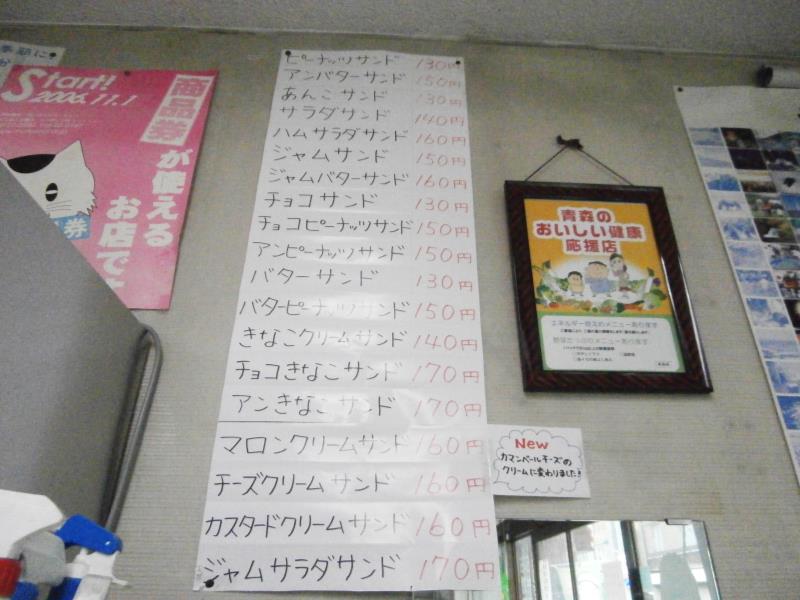 Start!
2006.11.1
商品券
が使える
お店です
券
ピーナッツサンド 130円
アンバターサンド 150円
あんこサンド 130円
サラダサンド 140円
ハムサラダサンド 160円
ジャムサンド 150円
ジャムバターサンド 160円
チョコサンド 130円
チョコピーナッツサンド 150円
アンピーナッツサンド 150円
バターサンド 130円
バターピーナッツサンド 150円
きなこクリームサンド 140円
チョコきなこサンド 170円
アンきなこサンド 170円
マロンクリームサンド 160円
チーズクリームサンド 160円
カスタードクリームサンド 160円
ジャムサラダサンド 170円
New
カマンベールチーズの
クリームに変わりました!
青森の
おいしい健康
応援店
エネルギー控えめメニューあります
野菜たっぷりメニューあります